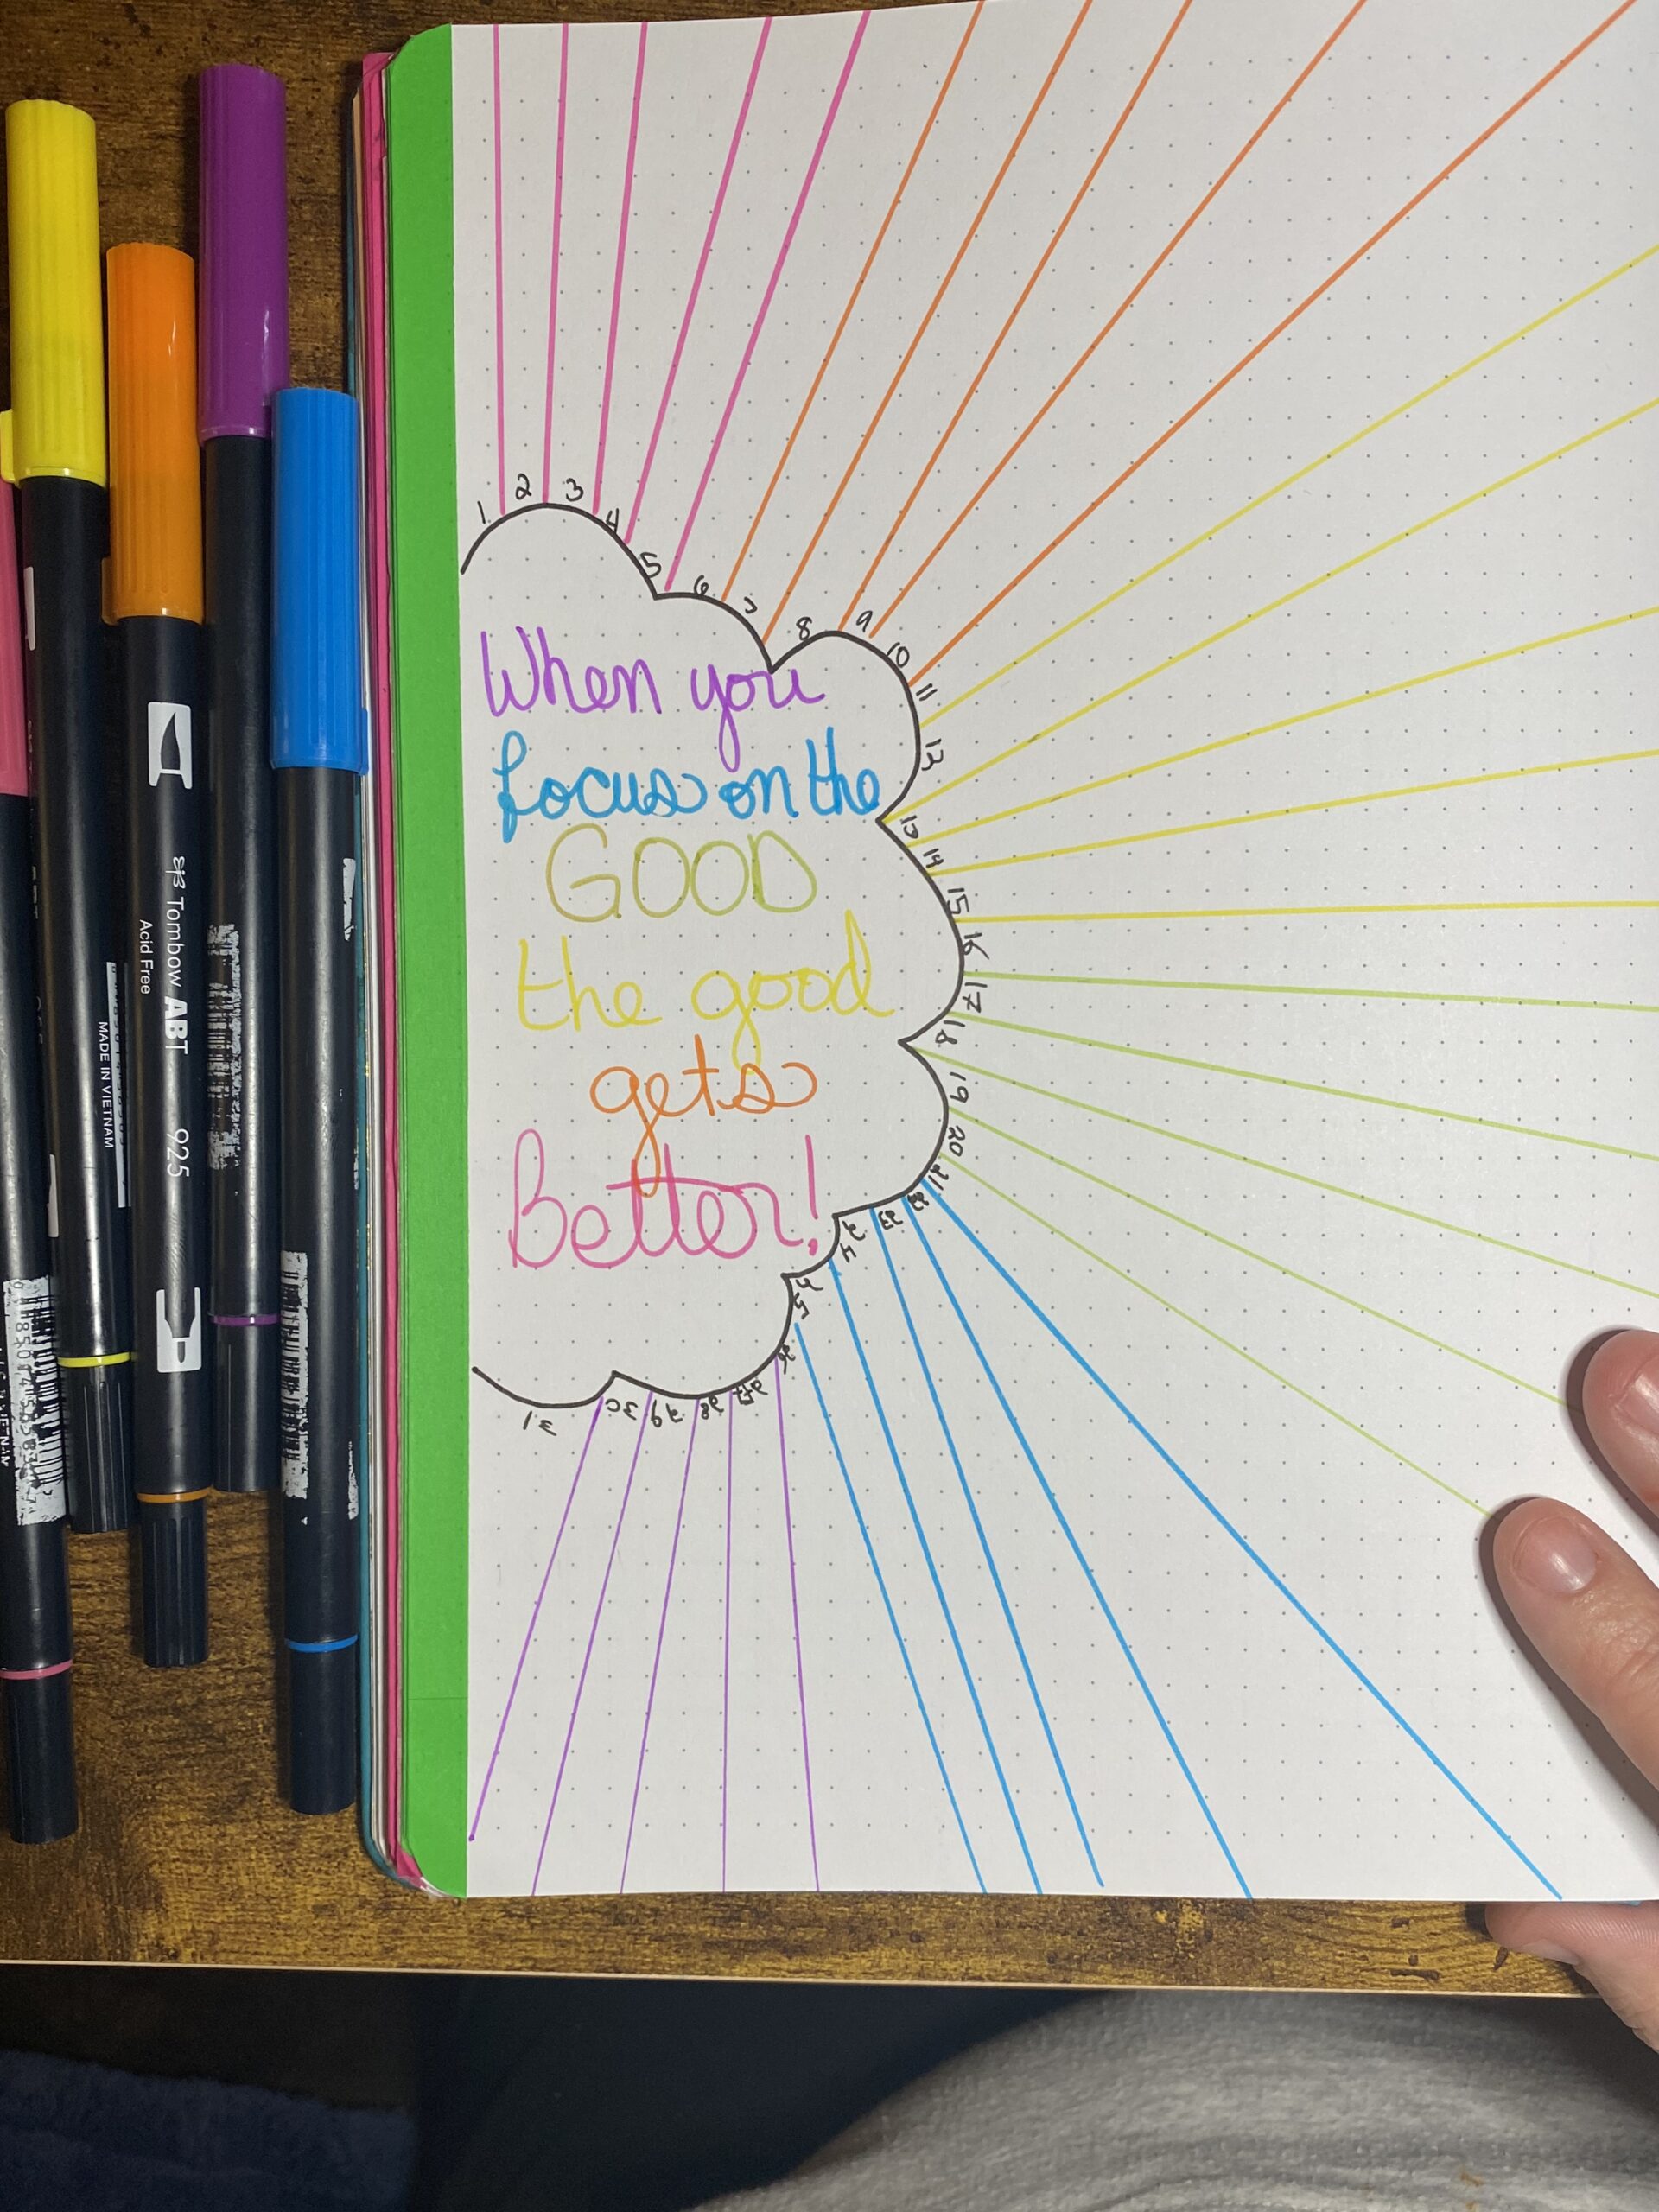 1
2
3
4
5
6
7
8
9
10
11
13
13
14
15
16
17
18
19
20
21
22
23
24
25
26
27
28
29
30
31
When you
focus on the
GOOD
the good
gets
Better!
Tombow ABT 925
Acid Free
MADE IN VIETNAM